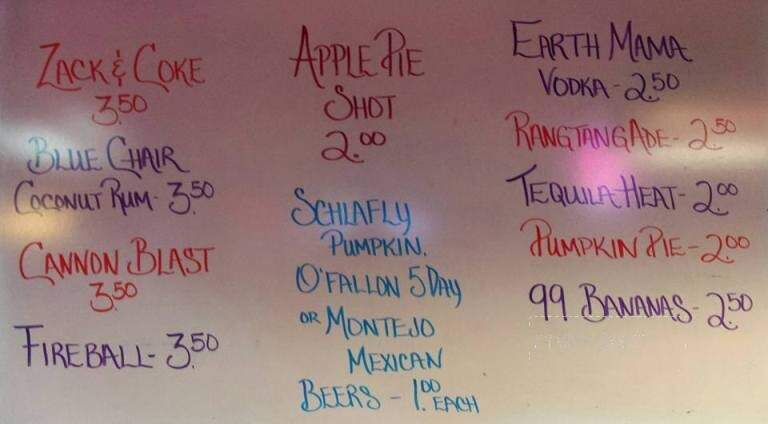 ZACK & COKE
3.50
BLUE CHAIR
COCONUT RUM - 3.50
CANNON BLAST
3.50
FIREBALL - 3.50
APPLE PIE
SHOT
2.00
SCHLAFLY
PUMPKIN.
O'FALLON 5 DAY
OR MONTEJO
MEXICAN
BEERS - 1.00 EACH
EARTH MAMA
VODKA - 2.50
RANGTANGADE - 2.50
TEQUILA HEAT - 2.00
PUMPKIN PIE - 2.00
99 BANANAS - 2.50